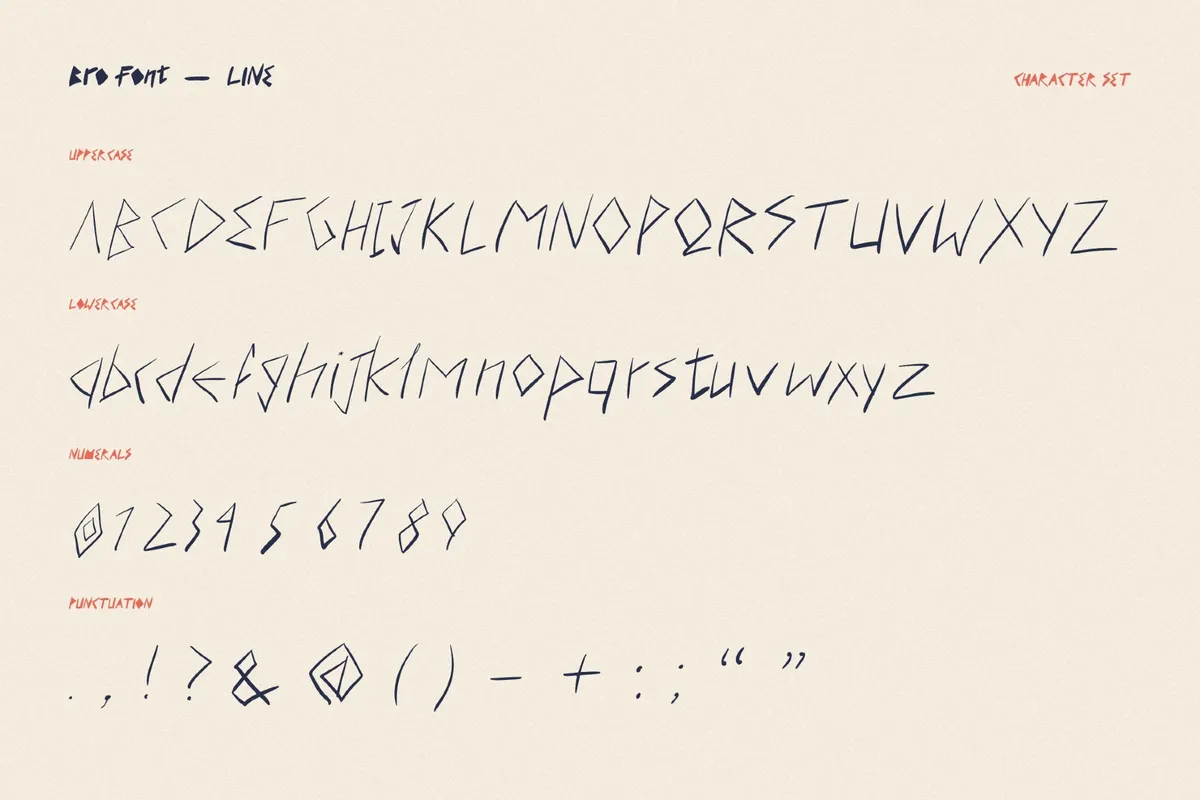 Bro Font — LINE
CHARACTER SET
UPPERCASE
ABCDEFGHIJKLMNOPQRSTUVWXYZ
LOWERCASE
abcdefghijklmnopqrstuvwxyz
NUMERALS
0123456789
PUNCTUATION
. , ! ? & @ ( ) - + : ; “ ”